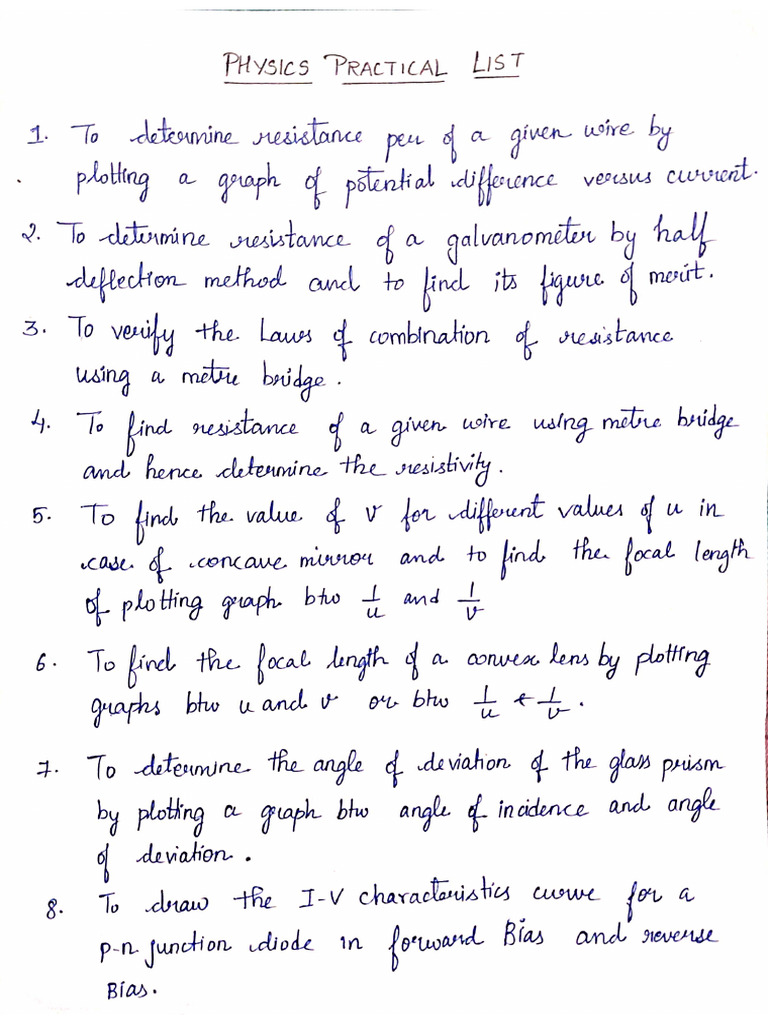 PHYSICS PRACTICAL LIST
1. To determine resistance per of a given wire by
plotting a graph of potential difference versus current.
2. To determine resistance of a galvanometer by half
deflection method and to find its figure of merit.
3. To verify the Laws of combination of resistance
using a metre bridge.
4. To find resistance of a given wire using metre bridge
and hence determine the resistivity.
5. To find the value of v for different values of u in
case of concave mirror and to find the focal length
of plotting graph btw 1/u and 1/v
6. To find the focal length of a convex lens by plotting
graphs btw u and v or btw 1/u & 1/v.
7. To determine the angle of deviation of the glass prism
by plotting a graph btw angle of incidence and angle
of deviation.
8. To draw the I-V characteristics curve for a
p-n junction diode in forward Bias and reverse
Bias.